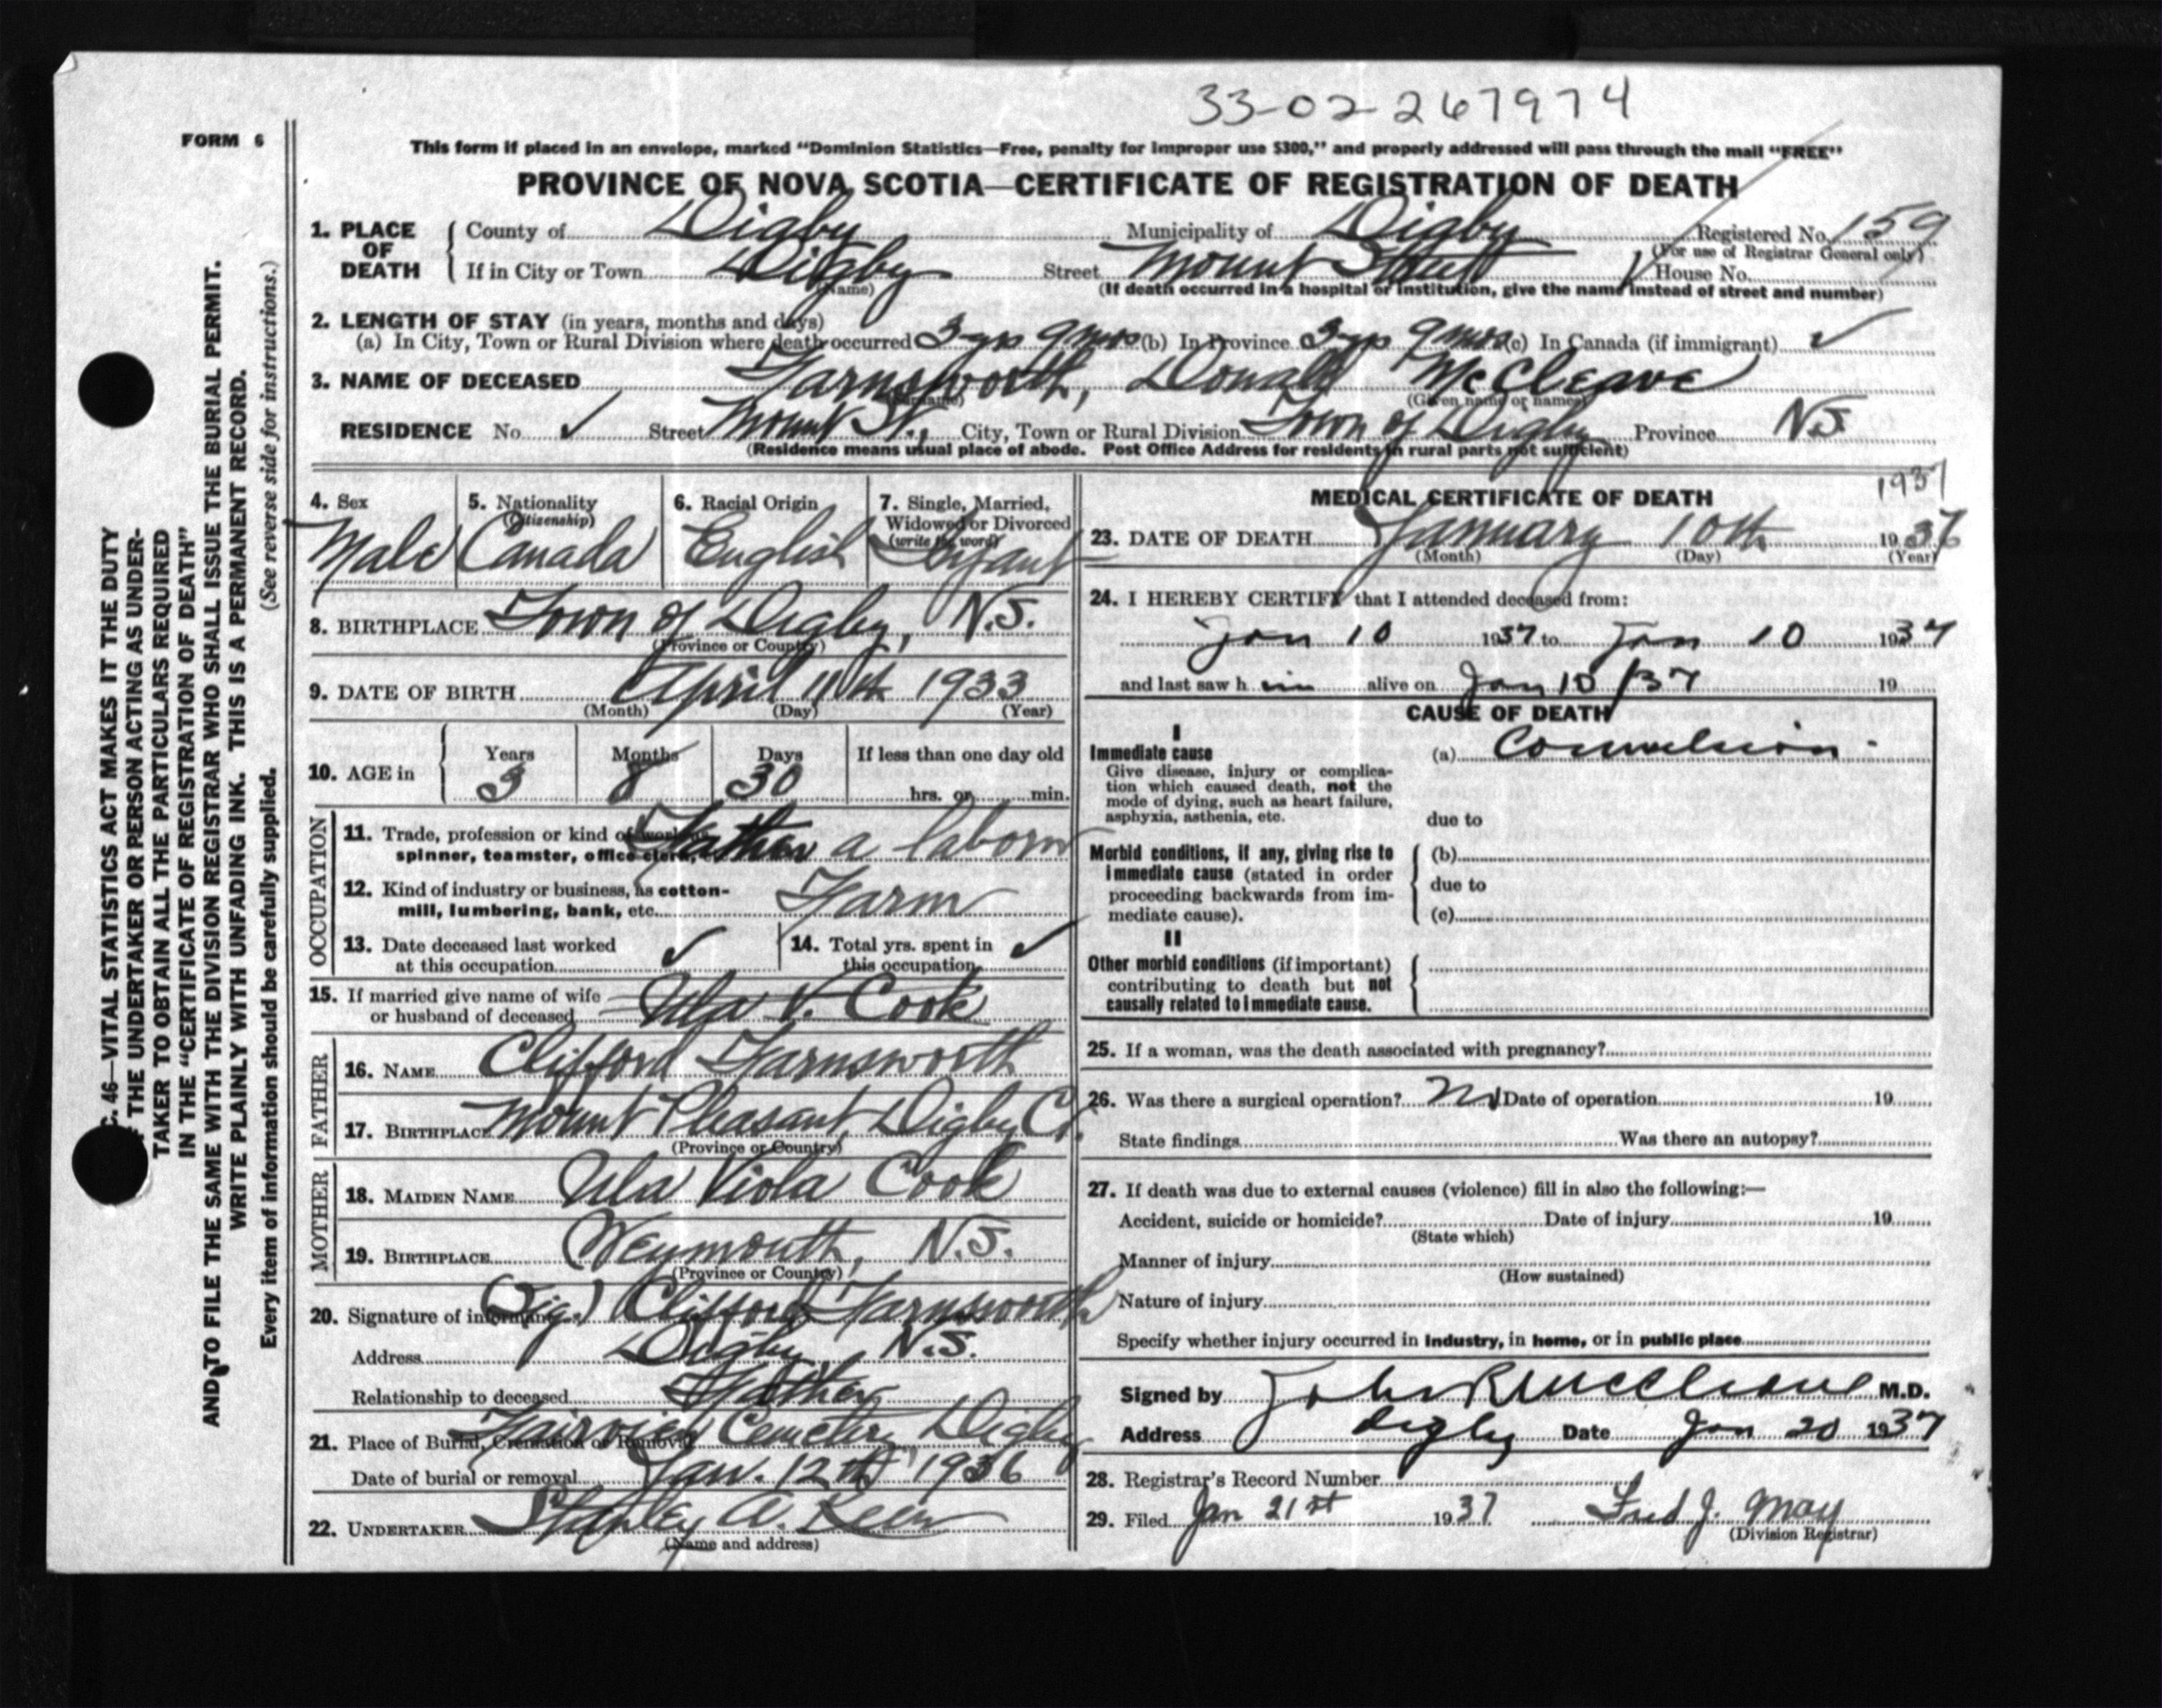 33-02-267974
FORM 6
This form if placed in an envelope, marked "Dominion Statistics—Free, penalty for improper use $300," and properly addressed will pass through the mail "FREE"
PROVINCE OF NOVA SCOTIA—CERTIFICATE OF REGISTRATION OF DEATH
1. PLACE OF DEATH County of Digby Municipality of Digby Registered No. 159
(For use of Registrar General only)
If in City or Town Digby Street Mount Street House No.
(Name)
(If death occurred in a hospital or institution, give the name instead of street and number)
2. LENGTH OF STAY (in years, months and days)
(a) In City, Town or Rural Division where death occurred 3 yrs 9 mos (b) In Province 3 yrs 9 mos (c) In Canada (if immigrant) ✓
3. NAME OF DECEASED Farnsworth, Donald McCleave
(Surname) (Given name or names)
RESIDENCE No. ✓ Street Mount St., City, Town or Rural Division Town of Digby Province N.S
(Residence means usual place of abode. Post Office Address for residents in rural parts not sufficient)
4. Sex Male
5. Nationality (Citizenship) Canada
6. Racial Origin English
7. Single, Married, Widowed or Divorced (write the word) Infant
8. BIRTHPLACE Town of Digby, N.S.
(Province or Country)
9. DATE OF BIRTH April 11th 1933
(Month) (Day) (Year)
10. AGE in Years 3 Months 8 Days 30 If less than one day old hrs. or min.
OCCUPATION
11. Trade, profession or kind of work as Father a laborer
spinner, teamster, office clerk, etc.
12. Kind of industry or business, as cotton-mill, lumbering, bank, etc. Farm
13. Date deceased last worked at this occupation ✓
14. Total yrs. spent in this occupation ✓
15. If married give name of wife or husband of deceased Ula V. Cook
FATHER
16. NAME Clifford Farnsworth
17. BIRTHPLACE Mount Pleasant, Digby Co.
(Province or Country)
MOTHER
18. MAIDEN NAME Ula Viola Cook
19. BIRTHPLACE Weymouth, N.S.
(Province or Country)
20. Signature of informant (Sig.) Clifford Farnsworth
Address Digby, N.S.
Relationship to deceased Father
21. Place of Burial, Cremation or Removal Fairview Cemetery Digby
Date of burial or removal Jan. 12th 1936
22. UNDERTAKER Stanley A. Keen
(Name and address)
MEDICAL CERTIFICATE OF DEATH
1937
23. DATE OF DEATH January 10th 1936
(Month) (Day) (Year)
24. I HEREBY CERTIFY that I attended deceased from:
Jan 10 1937 to Jan 10 1937
and last saw h im alive on Jan 10/37 19
CAUSE OF DEATH
I
Immediate cause (a) Convulsion
Give disease, injury or complication which caused death, not the mode of dying, such as heart failure, asphyxia, asthenia, etc.
due to
Morbid conditions, if any, giving rise to immediate cause (stated in order proceeding backwards from immediate cause).
(b)
due to
(c)
II
Other morbid conditions (if important) contributing to death but not causally related to immediate cause.
25. If a woman, was the death associated with pregnancy?
26. Was there a surgical operation? No Date of operation 19
State findings Was there an autopsy?
27. If death was due to external causes (violence) fill in also the following:—
Accident, suicide or homicide? Date of injury 19
(State which)
Manner of injury
(How sustained)
Nature of injury
Specify whether injury occurred in industry, in home, or in public place
Signed by John R McCleave M.D.
Address Digby Date Jan 20 1937
28. Registrar's Record Number
29. Filed Jan 21st 1937 Fred J. May
(Division Registrar)
C. 46—VITAL STATISTICS ACT MAKES IT THE DUTY
THE UNDERTAKER OR PERSON ACTING AS UNDER-
TAKER TO OBTAIN ALL THE PARTICULARS REQUIRED
IN THE "CERTIFICATE OF REGISTRATION OF DEATH"
AND TO FILE THE SAME WITH THE DIVISION REGISTRAR WHO SHALL ISSUE THE BURIAL PERMIT.
WRITE PLAINLY WITH UNFADING INK. THIS IS A PERMANENT RECORD.
Every item of information should be carefully supplied. (See reverse side for instructions.)